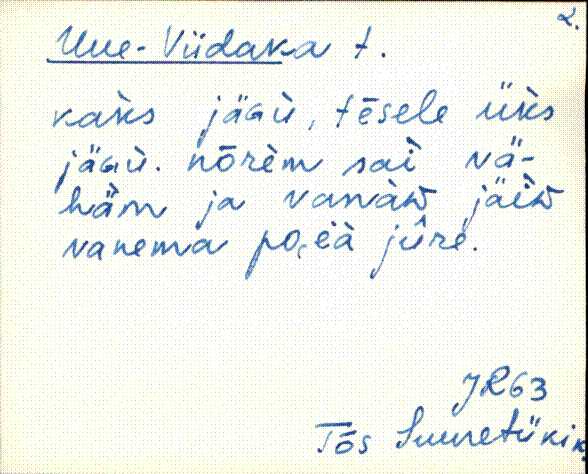 2.
Uue-Viidaka t.
kaks jäGù, tēsele üks
jäGù. nōrèm sai vä-
häm ja vanàw jäiw
vanema poeà jûre.
JR63
Tõs Suuretükik